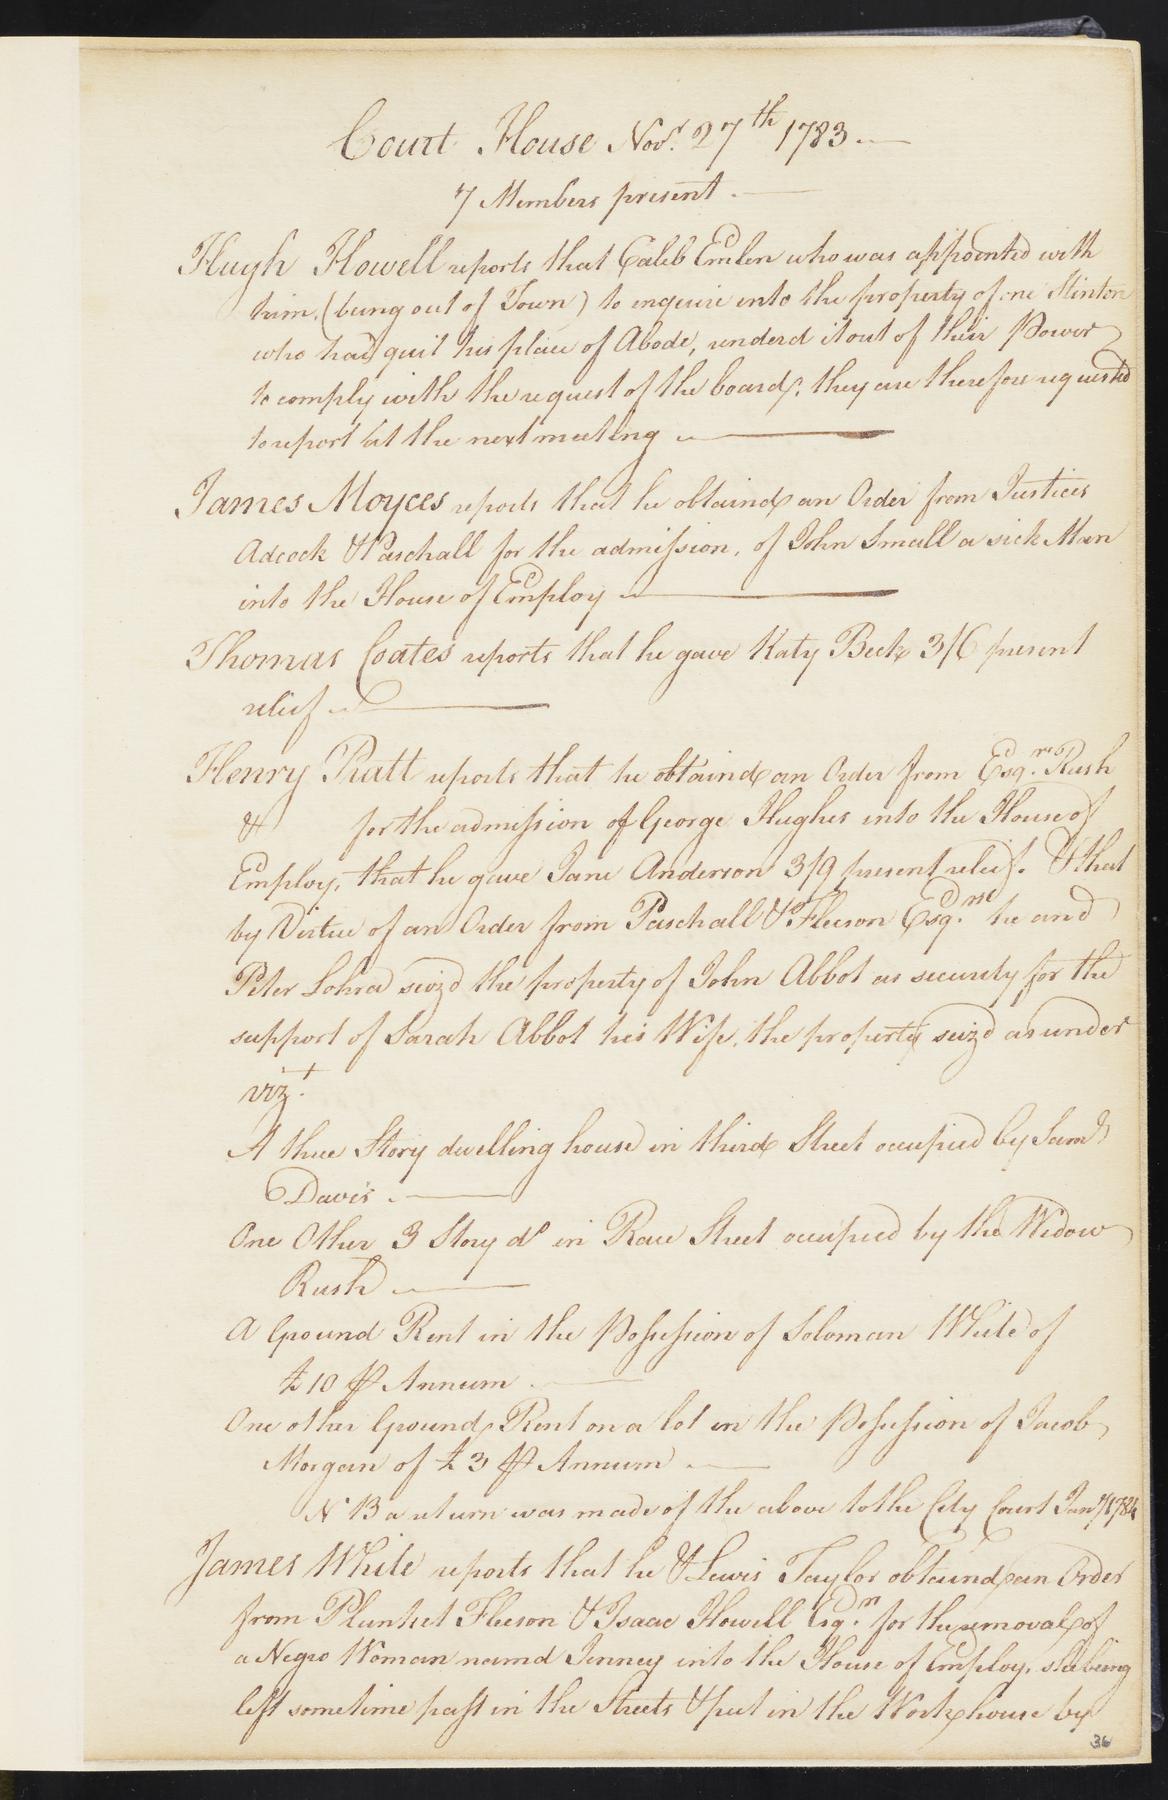 Court House Novr. 27th 1783
7 Members present
Hugh Howell reports that Caleb Emlen who was appointed with
him (being out of Town) to inquire into the property of one Stinton
who had quit his place of Abode, renderd it out of their Power
to comply with the request of the board, they are therefore requested
to report at the next meeting
James Moyces reports that he obtaind an Order from Justices
Adcock & Paschall for the admission, of John Small a sick Man
into the House of Employ
Thomas Coates reports that he gave Katy Beck 3/6 present
relief
Henry Pratt reports that he obtaind an Order from Esqr. Rush
& for the admission of George Hughes into the House of
Employ, that he gave Jane Anderson 3/9 present relief. & that
by Virtue of an Order from Paschall & Fleeson Esqrs. he and
Peter Lohra seizd the property of John Abbot as security for the
support of Sarah Abbot his Wife, the property seizd as under
vizt.
A three Story dwelling house in third Street occupied by Saml
Davis
One Other 3 Story do in Race Street occupied by the Widow
Rush
A Ground Rent in the Possession of Soloman White of
£10 ⅌ Annum
One other Ground Rent on a lot in the Possession of Jacob
Morgan of £3 ⅌ Annum
N B a return was made of the above to the City Court Jany 1784
James White reports that he & Lewis Taylor obtaind an Order
from Plunket Fleeson & Isaac Howell Esqrs. for the removal of
a Negro Woman namd Jenney into the House of Employ, she being
left sometime past in the Streets & put in the Workhouse by
36